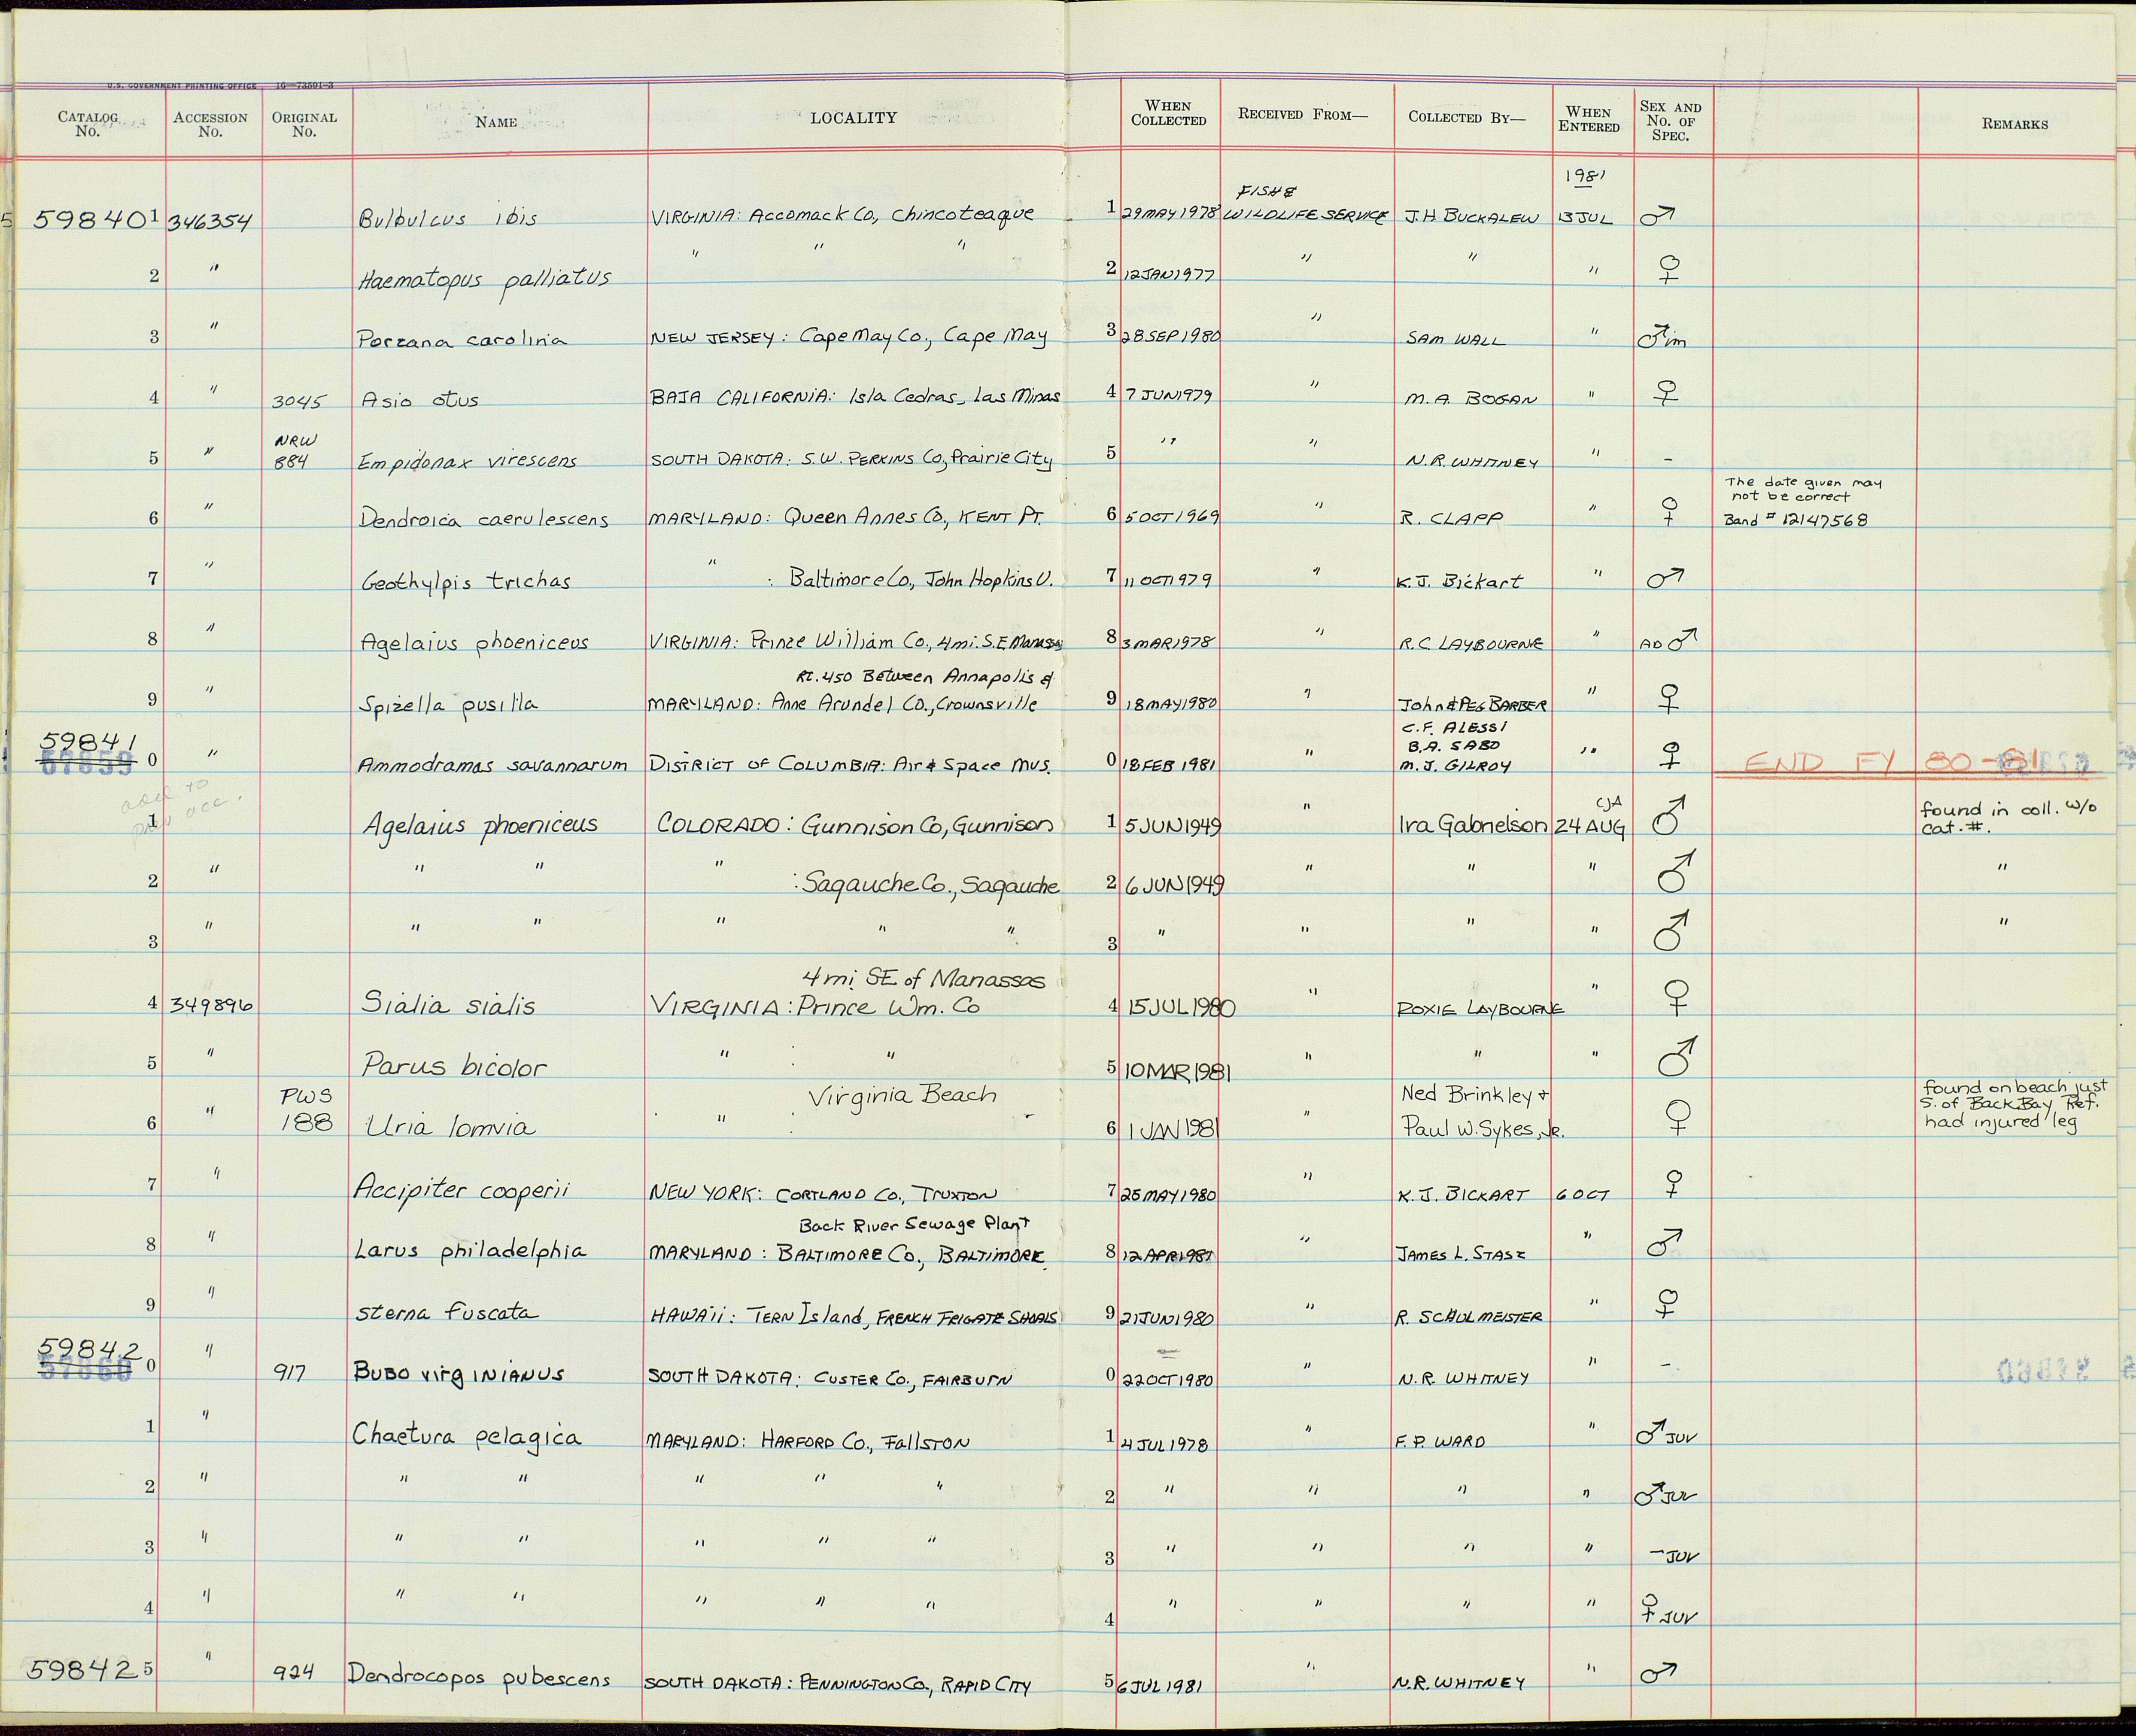 U.S. GOVERNMENT PRINTING OFFICE 16—73591-3
CATALOG No. ACCESSION No. ORIGINAL No. NAME LOCALITY WHEN COLLECTED RECEIVED FROM— COLLECTED BY— WHEN ENTERED SEX AND No. OF SPEC. REMARKS
1981
FISH &
598401 346354 Bulbulcus ibis VIRGINIA: Accomack Co, Chincoteague 1 29MAY1978 WILDLIFE SERVICE J.H. BUCKALEW 13 JUL ♂
2 " Haematopus palliatus " " " 2 12JAN1977 " " " ♀
3 " Porzana carolina NEW JERSEY: Cape May Co., Cape May 3 28SEP1980 " SAM WALL " ♂im
4 " 3045 Asio otus BAJA CALIFORNIA: Isla Cedras, Las Minas 4 7 JUN1979 " M.A. BOGAN " ♀
NRW
5 " 884 Empidonax virescens SOUTH DAKOTA: S.W. PERKINS Co, Prairie City 5 " " N.R. WHITNEY " –
The date given may
not be correct
6 " Dendroica caerulescens MARYLAND: Queen Annes Co, KENT PT. 6 5OCT1969 " R. CLAPP " ♀ Band # 12147568
7 " Geothylpis trichas " : Baltimore Co., John Hopkins U. 7 11OCT1979 " K.J. Bickart " ♂
8 " Agelaius phoeniceus VIRGINIA: Prince William Co., 4mi. S.E Manassas 8 3MAR1978 " R.C. LAYBOURNE " AD ♂
Rt. 450 Between Annapolis &
9 " Spizella pusilla MARYLAND: Anne Arundel Co., Crownsville 9 18MAY1980 " John & PEG BARBER " ♀
C.F. ALESSI
59841 B.A. SABO
57859 0 " Ammodramas savannarum DISTRICT OF COLUMBIA: Air & Space Mus. 0 18FEB 1981 " M.J. GILROY " ♀ END FY 80-81
add to
prev acc.
CJA
1 Agelaius phoeniceus COLORADO: Gunnison Co, Gunnison 1 5JUN1949 " Ira Gabrielson 24 AUG ♂ found in coll. w/o
cat. #.
2 " " " " : Sagauche Co., Sagauche 2 6JUN1949 " " " ♂ "
3 " " " " " " 3 " " " " ♂ "
4 mi SE of Manassas
4 349896 Sialia sialis VIRGINIA: Prince Wm. Co 4 15JUL1980 " ROXIE LAYBOURNE " ♀
5 " Parus bicolor " : " 5 10MAR1981 " " " ♂
PWS Virginia Beach Ned Brinkley + found on beach just
S. of Back Bay Ref.
6 " 188 Uria lomvia " : 6 1JAN1981 " Paul W. Sykes, Jr. ♀ had injured leg
7 " Accipiter cooperii NEW YORK: CORTLAND Co., TRUXTON 7 25MAY1980 " K.J. BICKART 6 OCT ♀
Back River Sewage Plant
8 " Larus philadelphia MARYLAND: BALTIMORE Co., BALTIMORE 8 12APR1981 " JAMES L. STASZ " ♂
9 " Sterna fuscata HAWAii: TERN Island, FRENCH FRIGATE SHOALS 9 21JUN1980 " R. SCHULMEISTER " ♀
59842
57860 0 " 917 BUBO VirgINIANUS SOUTH DAKOTA: CUSTER Co., FAIRBURN 0 22OCT1980 " N.R. WHITNEY " –
1 " Chaetura pelagica MARYLAND: HARFORD Co., FallSTON 1 4JUL1978 " F.P. WARD " ♂ JUV
2 " " " " " " 2 " " " " ♂ JUV
3 " " " " " " 3 " " " " – JUV
4 " " " " " " 4 " " " " ♀ JUV
598425 " 924 Dendrocopos pubescens SOUTH DAKOTA: PENNINGTON Co., RAPID CITY 5 6JUL1981 " N.R. WHITNEY " ♂